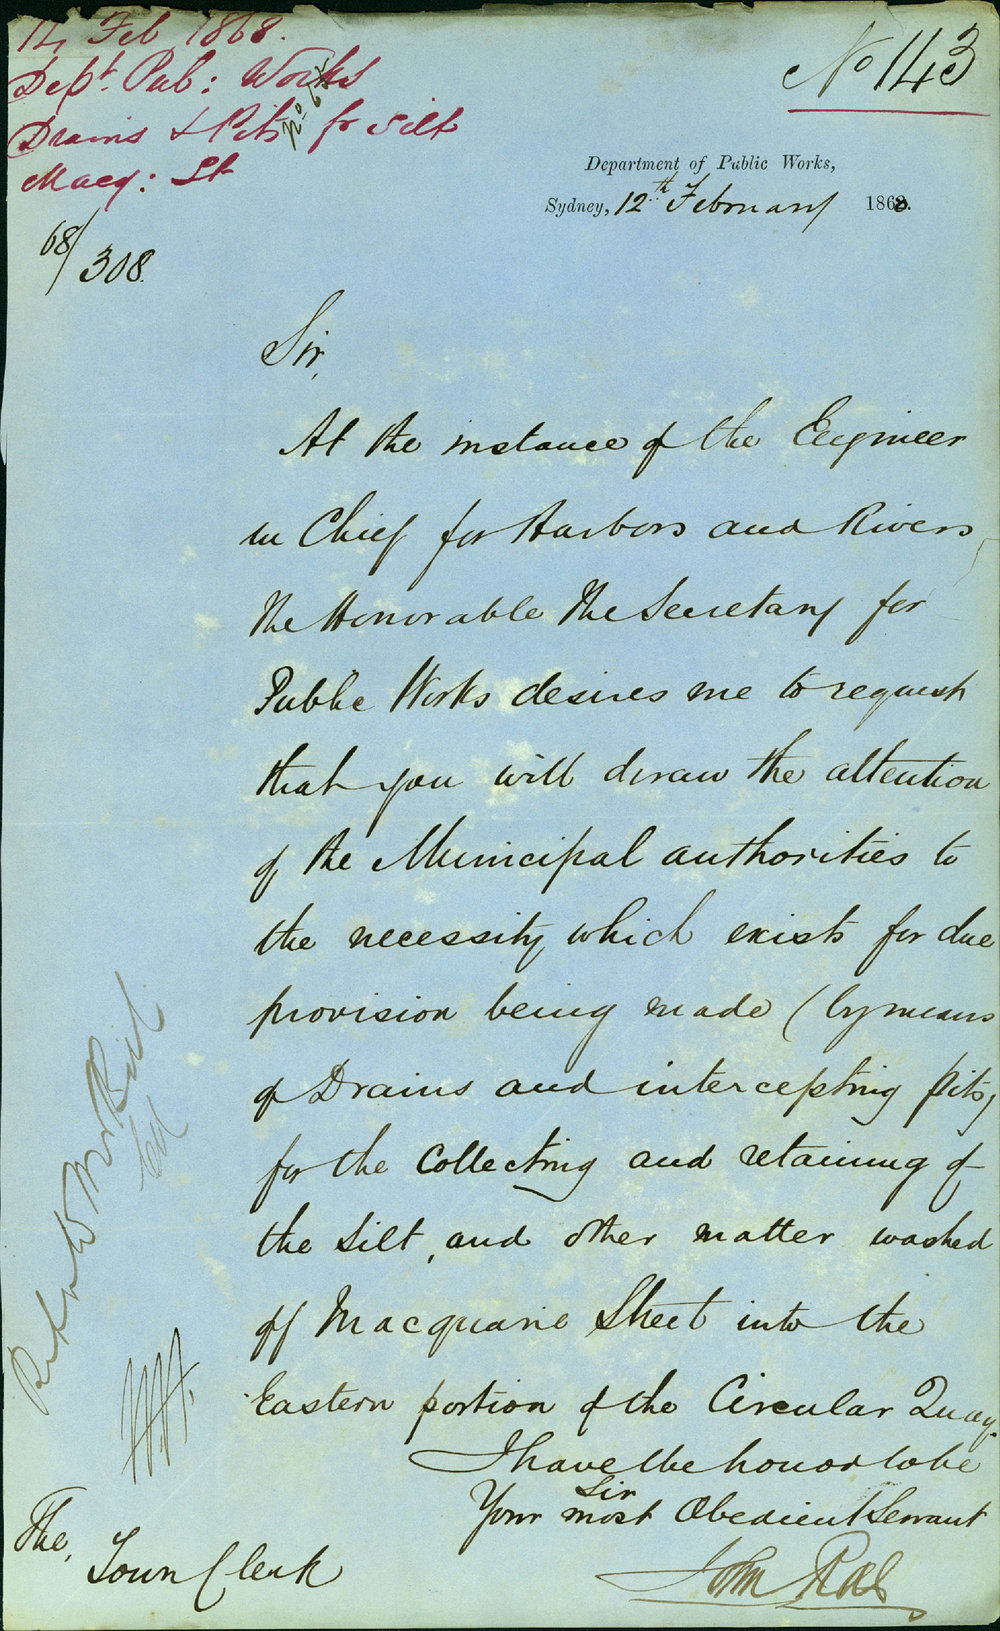 14 Feb 1868.
Dept. Pub: Works
Drains & Pits for silt
Macq: St
No 143
Department of Public Works,
Sydney, 12th February 1868.
68/308.
Sir,
At the instance of the Engineer
in Chief for Harbors and Rivers
the Honorable the Secretary for
Public Works desires me to request
that you will draw the attention
of the Municipal authorities to
the necessity which exists for due
provision being made (by means
of Drains and intercepting pits)
for the Collecting and retaining of
the silt, and other matter washed
off Macquarie Street into the
Eastern portion of the Circular Quay.
I have the honor to be
Sir
Your most Obedient Servant
John Rae
The,
Town Clerk